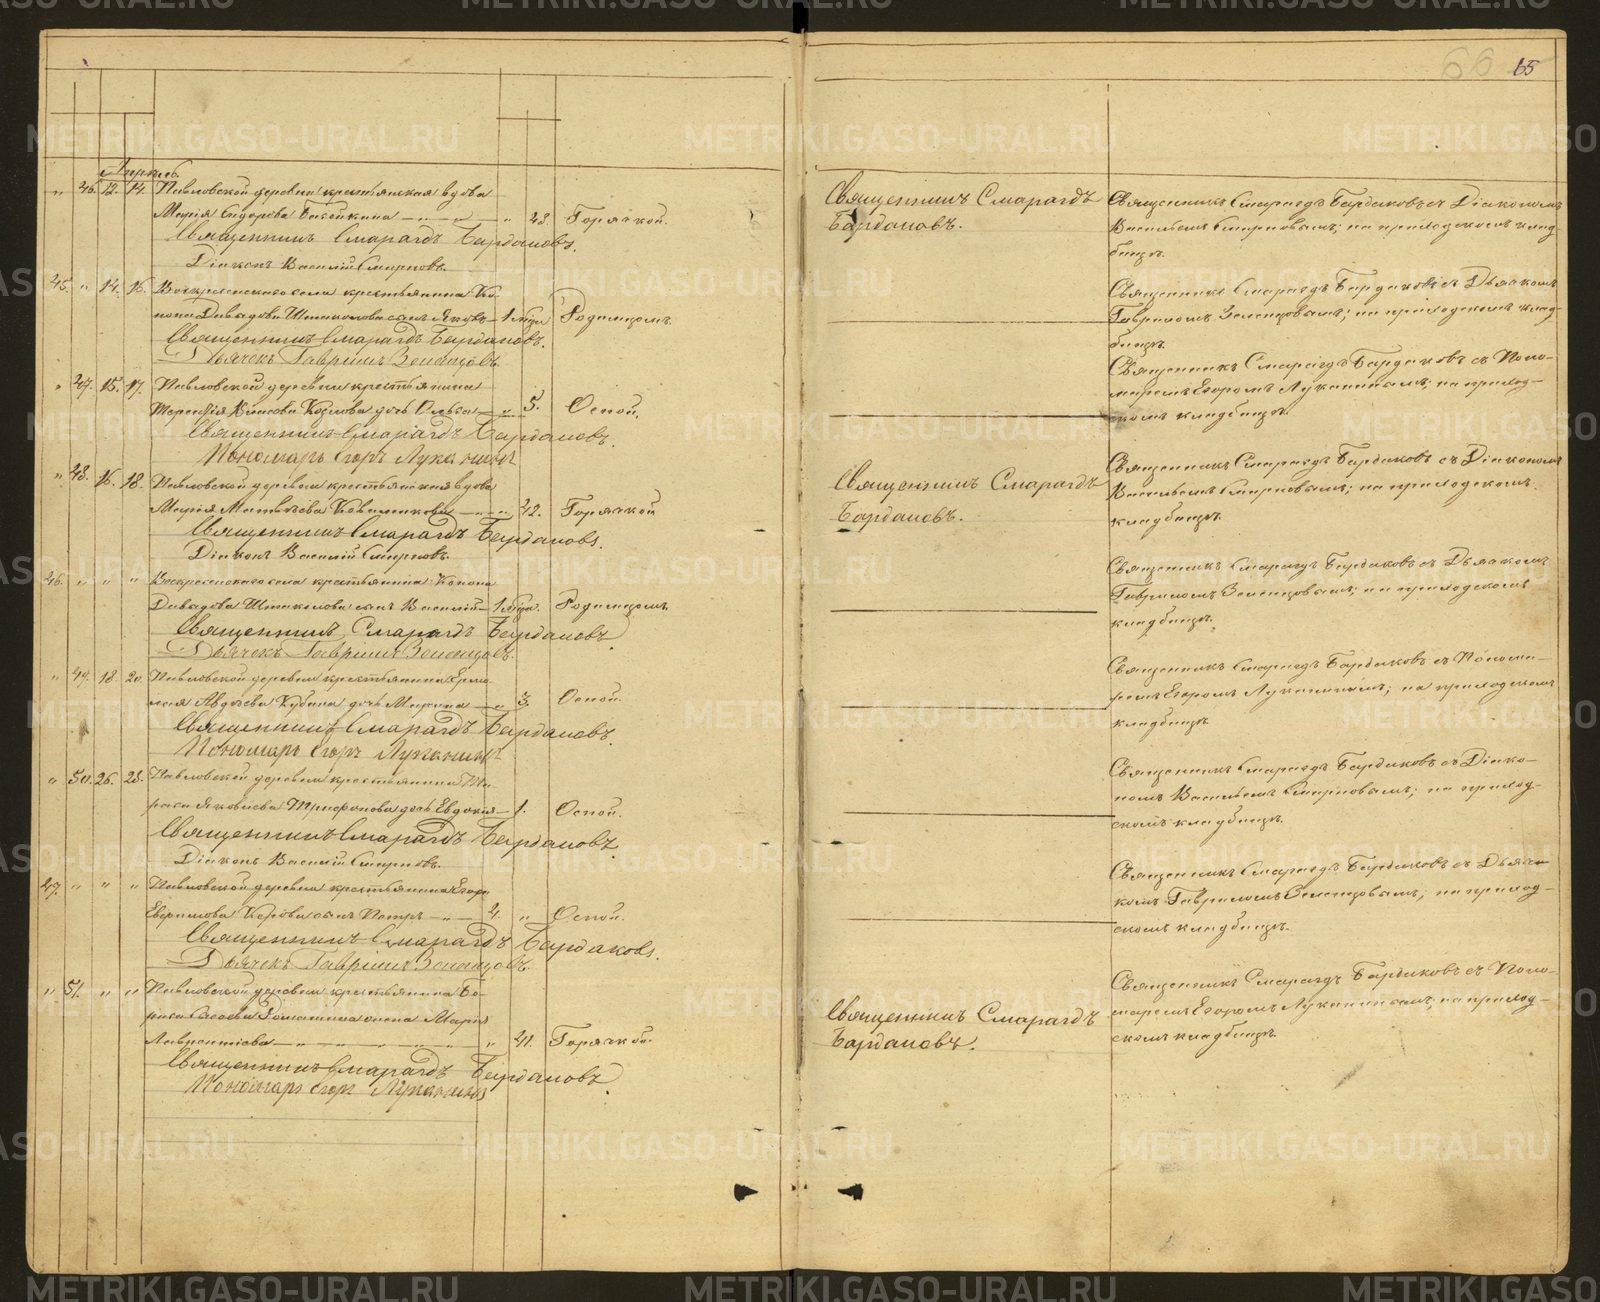 66 65
Апрель.
„ 46. 12. 14. Павловской деревни крестьянская вдова
Марія Сидорова — „ — „ — „ 48. Горячкой.
Священникъ Смарагдъ Бардаковъ.
Діаконъ Василій Смирновъ.
45. „ 14. 16. Воскресенскаго села крестьянина Ко-
нона Давыдова сынъ Яковъ — 1 Родимцомъ.
Священникъ Смарагдъ Бардаковъ.
Дьячекъ Гавріилъ
„ 47. 15. 17. Павловской деревни крестьянина
Терентія Власова Козлова дочь Ольга — „ 5. Оспой.
Священникъ Смарагдъ Бардаковъ.
Пономарь Егоръ Луканинъ
„ 48. 16. 18. Павловской деревни крестьянская вдова
Марія — „ — „ 42. Горячкой
Священникъ Смарагдъ Бардаковъ.
Діаконъ Василій Смирновъ.
46. „ „ „ Воскресенскаго села крестьянина Конона
Давыдова сынъ Василій — 1 Родимцомъ.
Священникъ Смарагдъ Бардаковъ
Дьячекъ Гавріилъ
„ 49. 18. 20. Павловской деревни крестьянина Ермо-
лая Авдѣева Кубина дочь Марина — „ 3. Оспой.
Священникъ Смарагдъ Бардаковъ.
Пономарь Егоръ Луканинъ
„ 50. 26. 28. Павловской деревни крестьянина Та-
раса Яковлева Трифонова дочь Евдокія — 1. Оспой.
Священникъ Смарагдъ Бардаковъ.
Діаконъ Василій Смирновъ.
47. „ „ „ Павловской деревни крестьянина Егора
сынъ Петръ — „ — „ Оспой.
Священникъ Смарагдъ Бардаковъ.
Дьячекъ Гавріилъ
„ 51. „ „ Павловской деревни крестьянина Бо-
риса жена Марія
Лаврентіева — „ — „ — „ — „ 41. Горячкой.
Священникъ Смарагдъ Бардаковъ.
Пономарь Егоръ Луканинъ
Священникъ Смарагдъ
Бардаковъ.
Священникъ Смарагдъ
Бардаковъ.
Священникъ Смарагдъ
Бардаковъ.
Священникъ Смарагдъ Бардаковъ съ Діакономъ
Васильемъ Смирновымъ; на приходскомъ клад-
бищѣ.
Священникъ Смарагдъ Бардаковъ съ Дьячкомъ
Гавриломъ на приходскомъ клад-
бищѣ.
Священникъ Смарагдъ Бардаковъ съ Поно-
маремъ Егоромъ Луканинымъ; на приход-
скомъ кладбищѣ.
Священникъ Смарагдъ Бардаковъ съ Діакономъ
Васильемъ Смирновымъ; на приходскомъ
кладбищѣ.
Священникъ Смарагдъ Бардаковъ съ Дьячкомъ
Гавриломъ на приходскомъ
кладбищѣ.
Священникъ Смарагдъ Бардаковъ съ Понома-
ремъ Егоромъ Луканинымъ; на приходскомъ
кладбищѣ.
Священникъ Смарагдъ Бардаковъ съ Діако-
номъ Васильемъ Смирновымъ; на приход-
скомъ кладбищѣ.
Священникъ Смарагдъ Бардаковъ съ Дьяч-
комъ Гавриломъ на приход-
скомъ кладбищѣ.
Священникъ Смарагдъ Бардаковъ съ Поно-
маремъ Егоромъ Луканинымъ; на приход-
скомъ кладбищѣ.
METRIKI.GASO-URAL.RU